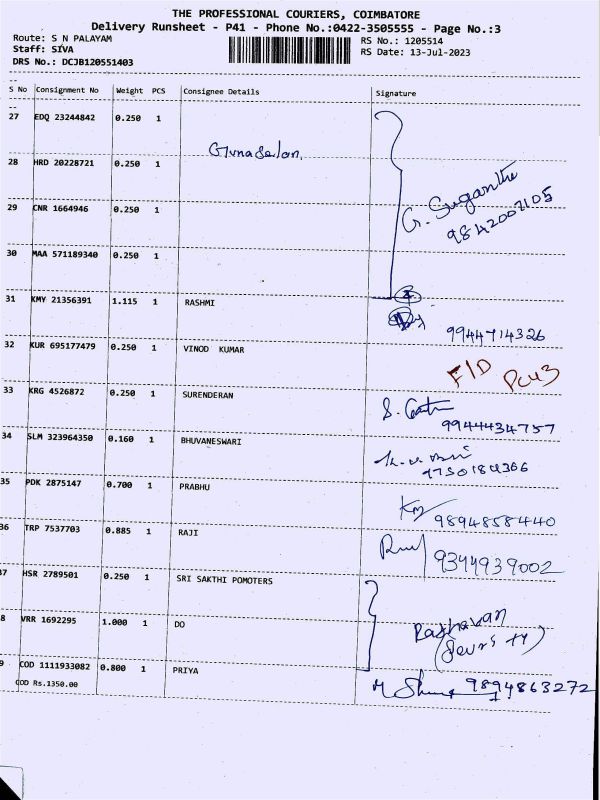 THE PROFESSIONAL COURIERS, COIMBATORE
Delivery Runsheet - P41 - Phone No.:0422-3505555 - Page No.:3
Route: S N PALAYAM
RS No.: 1205514
Staff: SIVA
RS Date: 13-Jul-2023
DRS No.: DCJB120551403
S No Consignment No Weight PCS Consignee Details Signature
--
27 EDQ 23244842 0.250 1
Gunaselan.
28 HRD 20228721 0.250 1
G. Suganthi
29 CNR 1664946 0.250 1
9842007105
30 MAA 571189340 0.250 1
31 KMY 21356391 1.115 1 RASHMI
9944714326
32 KUR 695177479 0.250 1 VINOD KUMAR
F/D
33 KRG 4526872 0.250 1 SURENDERAN
9944434757
34 SLM 323964350 0.160 1 BHUVANESWARI
9750184366
35 PDK 2875147 0.700 1 PRABHU
9894858440
36 TRP 7537703 0.885 1 RAJI
9344939002
37 HSR 2789501 0.250 1 SRI SAKTHI POMOTERS
8 VRR 1692295 1.000 1 DO
Raghavan
9 COD 1111933082 0.800 1 PRIYA
9894863272
COD Rs.1350.00